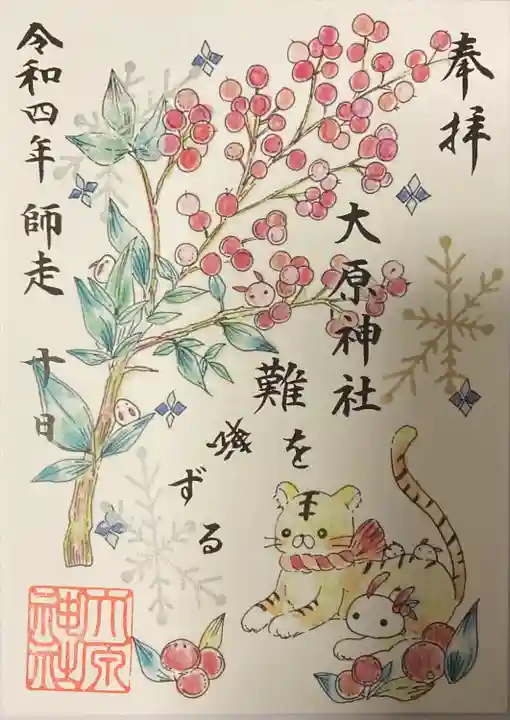 奉拝
大原神社
難を
転
ずる
令和四年 師走 十日
大原神社